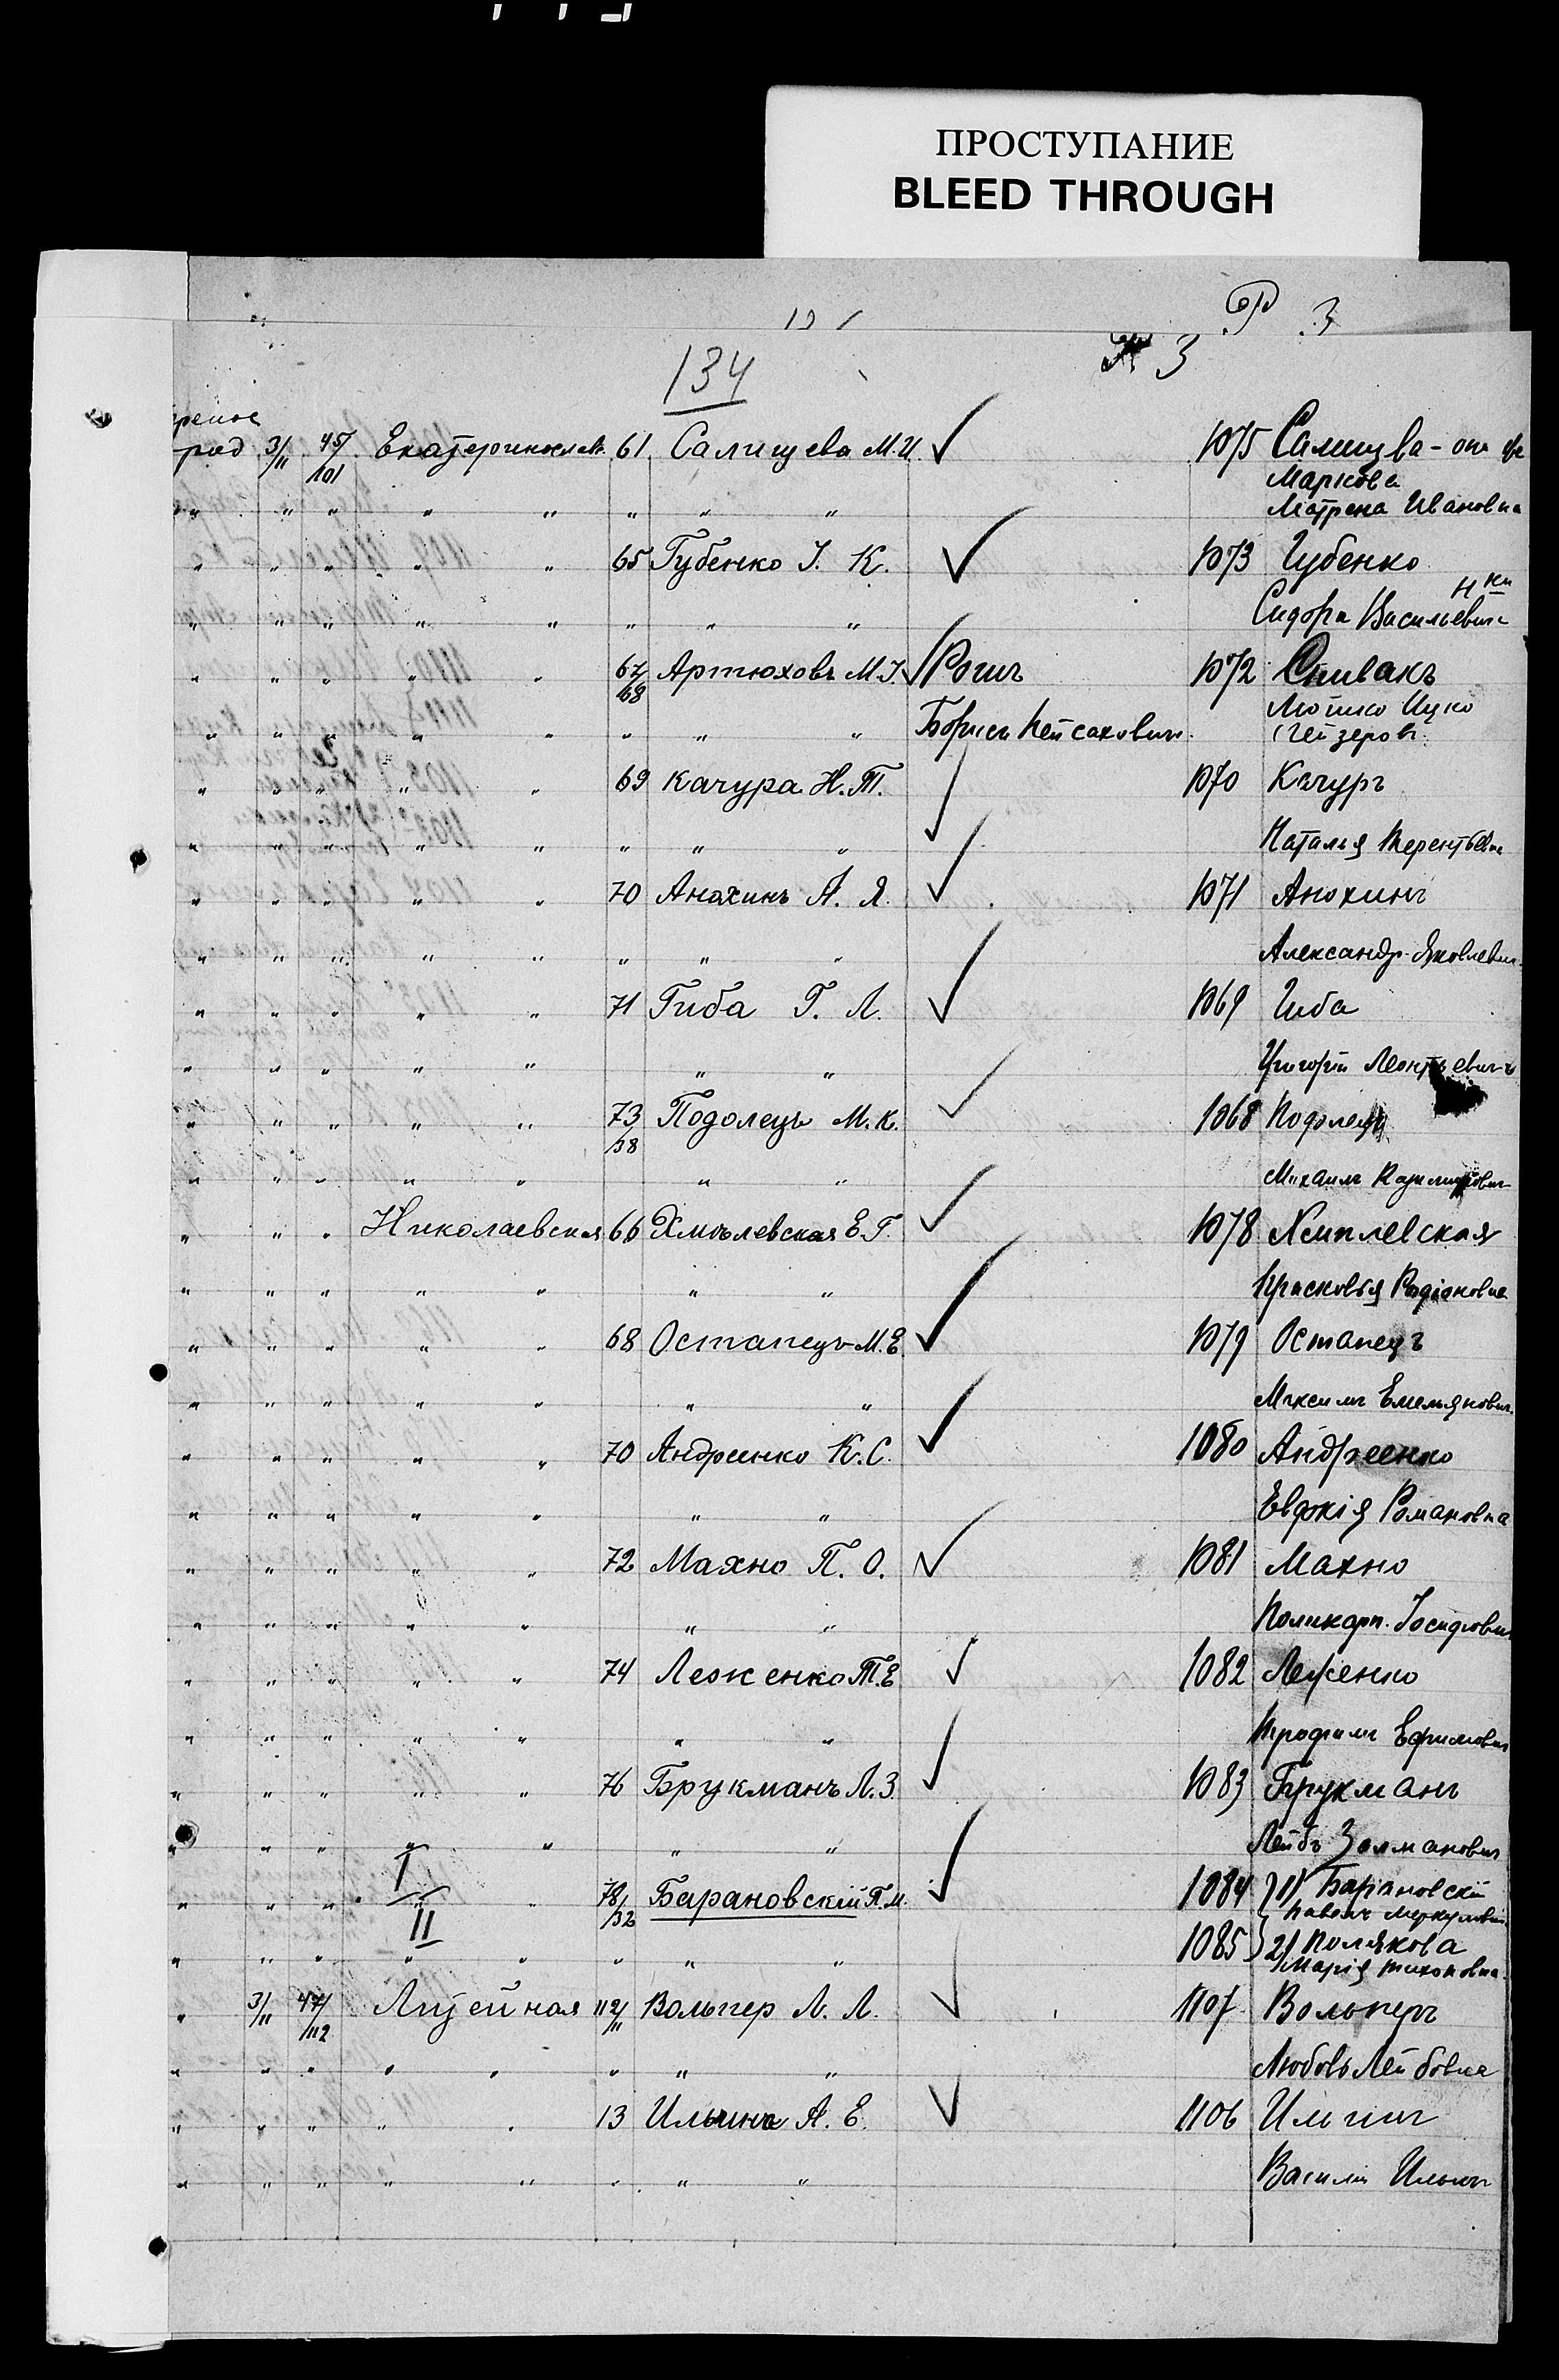 ПРОСТУПАНИЕ
BLEED THROUGH
Р 3
134
№ 3
город 3/11 45/101 Екатеринославс. 61 Салищева М. И. 1075 Салищева - она же
Маркова
" " " " " " " " Матрена Ивановна
" " " " " 65 Губенко І. К. 1073 Губенко н-ки
" " " " " " " " Сидора Васильевича
" " " " " 67/68 Артюховъ М. І. Рогичъ 1072 Спивакъ
Мошко Ицко
" " " " " " " " Борисъ Пейсаховичъ Гейзеров.
" " " " " 69 Качура Н. Т. 1070 Качуръ
" " " " " " " " Наталья Терентьевна
" " " " " 70 Анохинъ А. Я. 1071 Анохинъ
" " " " " " " " Александр. Яковлевич.
" " " " " 71 Гиба Г. Л. 1069 Гиба
" " " " " " " Григорій Леонтьевичъ
" " " " " 73/38 Подолецъ М. К. 1068 Подолецъ
" " " " " " " Михаилъ
" " " Николаевская 66 Хмѣлевская Е. Г. 1078 Хмѣлевская
" " " " " " " Прасковья Родіоновна
" " " " " 68 Остапецъ М. Е. 1079 Остапецъ
" " " " " " " Максимъ Емельянович.
" " " " " 70 Андреенко К. С. 1080 Андреенко
" " " " " " " Евдокія Романовна
" " " " " 72 Махно П. О. 1081 Махно
" " " " " " " Поликарп. Іосифович
" " " " " 74 Леженко Т. Е. 1082 Леженко
" " " " " " " Трофимъ Ефимович
" " " " " 76 Брукманъ Л. З. 1083 Брукманъ
" " " " " " " Лейбъ Залманович
I
" " " " " 78/32 Барановскій П. М. 1084 1) Барановскій
Павелъ Меркулович
II
" " " " " " " " 1085 2) Полякова
Марія Тихоновна
" 3/11 47/112 Литейная 112/11 Вольпер Л. Л. 1107 Вольперъ
" " " " " " " " Любовь Лейбовна
" " " " " 13 Ильинъ А. Е. 1106 Ильинъ
" " " " " " " " Василій Ильичъ